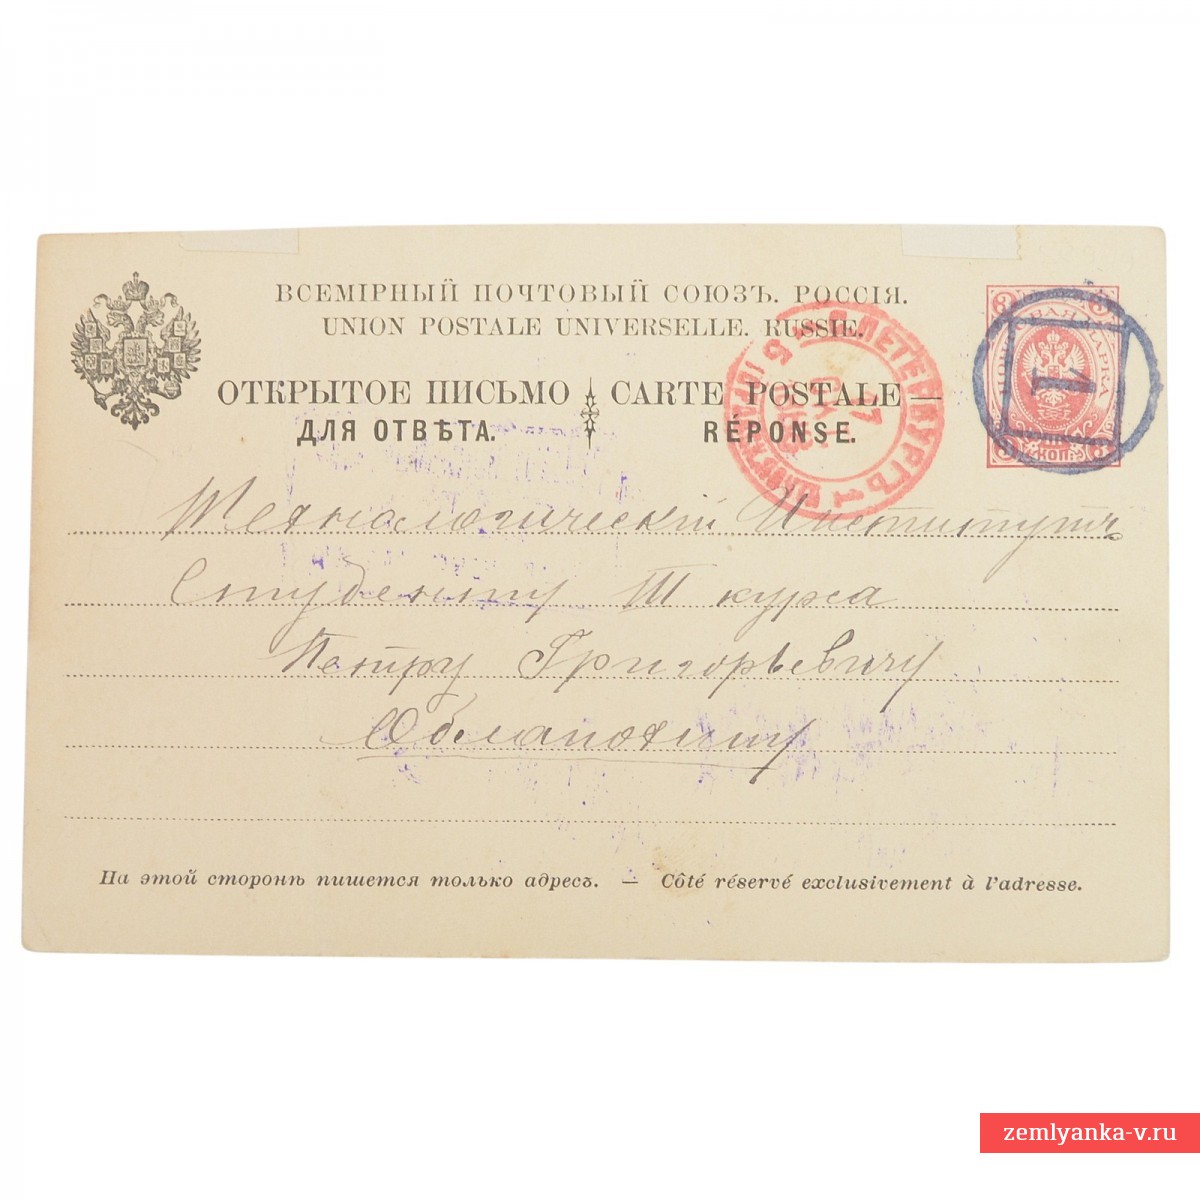 ВСЕМІРНЫЙ ПОЧТОВЫЙ СОЮЗЪ. РОССІЯ.
UNION POSTALE UNIVERSELLE. RUSSIE.
ОТКРЫТОЕ ПИСЬМО CARTE POSTALE —
ДЛЯ ОТВѢТА. RÉPONSE.
3 3
МАРКА
3 КОП. 3
1
С. ПЕТЕРБУРГЪ 1
7
Технологическій Институтъ
Студенту III курса
Петру Григорьевичу
На этой сторонѣ пишется только адресъ. — Côté réservé exclusivement à l'adresse.
zemlyanka-v.ru